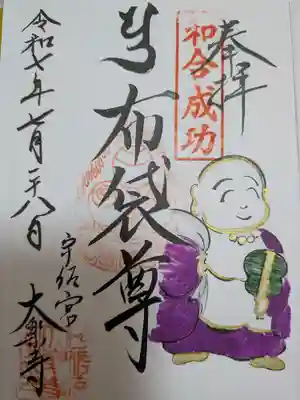 奉拝
和合成功
布袋尊
宇佐宮
大楽寺
令和七年七月二十八日